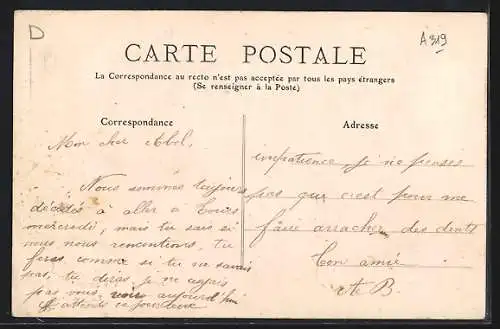 D
A 319
CARTE POSTALE
La Correspondance au recto n'est pas acceptée par tous les pays étrangers
(Se renseigner à la Poste)
Correspondance
Adresse
Mon cher Abel,
Nous sommes toujours
décidés à aller à Tours
mercredi, mais tu sais si
nous nous rencontrions, tu
feras comme si tu ne savais
pas, tu diras, je ne
pas vous voir aujourd'hui
attends ce jour avec
impatience, je ne pensais
pas que c'est pour me
faire arracher des dents
Ton amie
B.